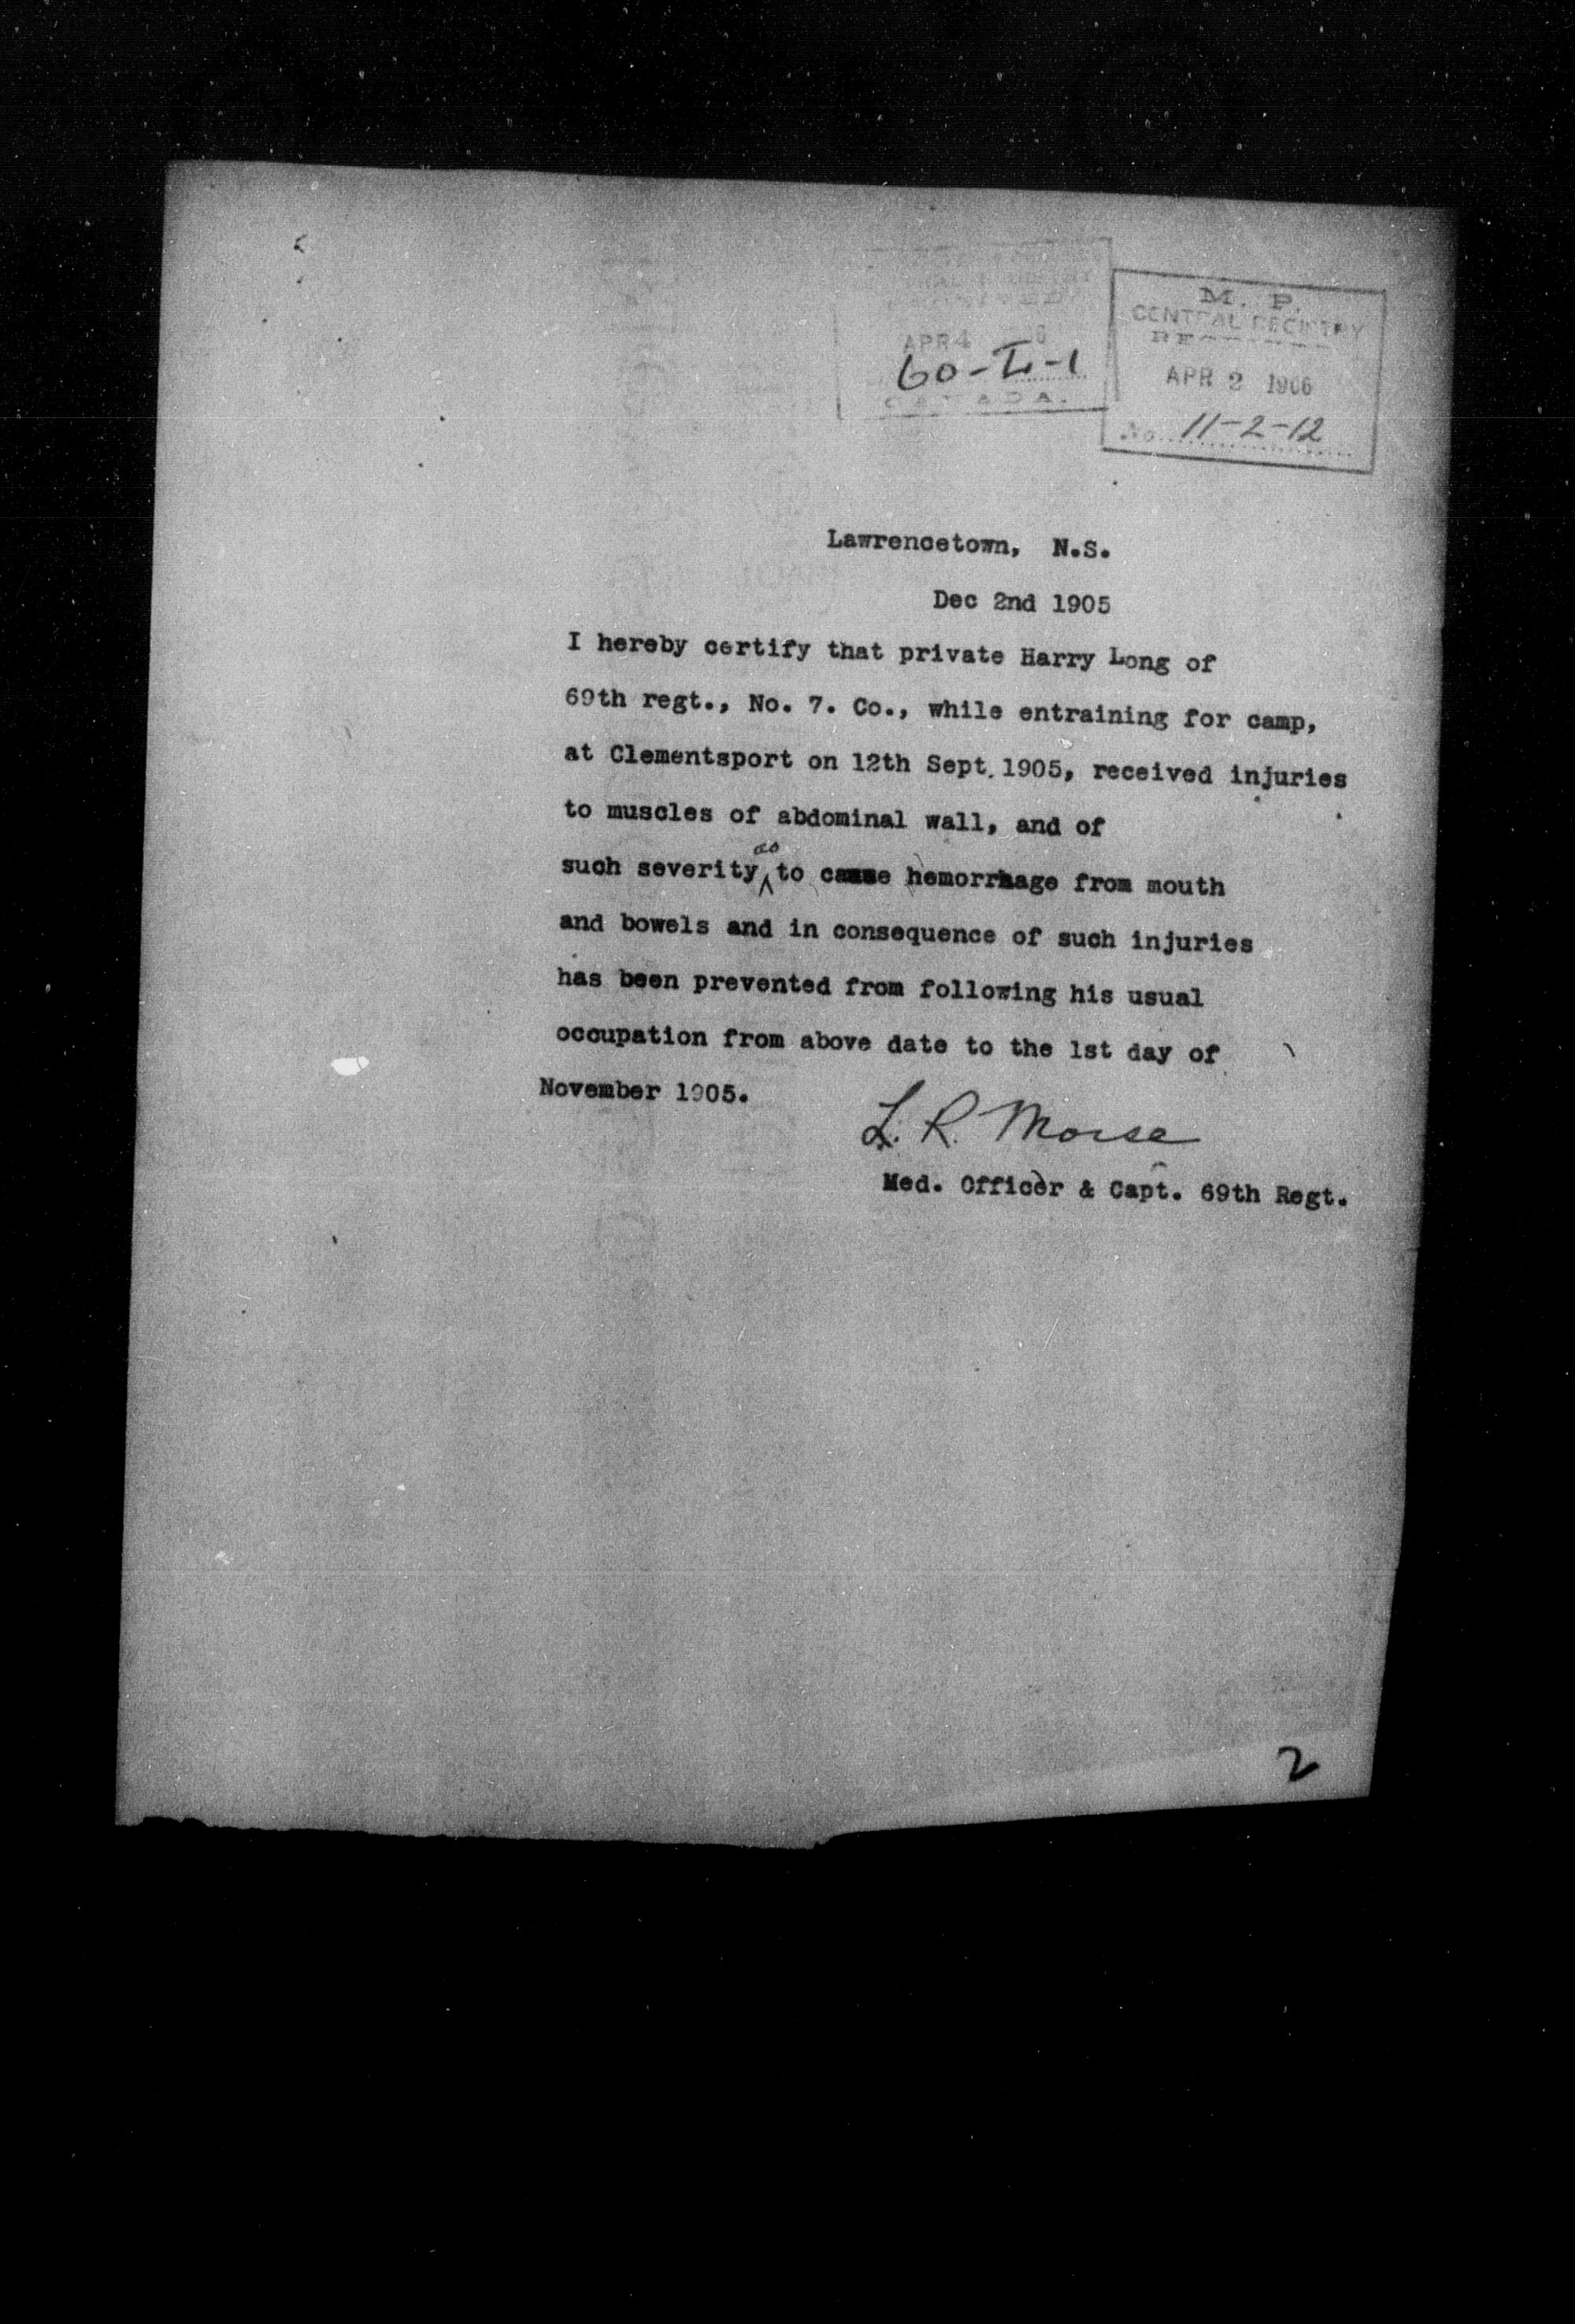 APR 4 6
60-L-1
CANADA.
M. P.
CENTRAL REGISTRY
APR 2 1906
No. 11-2-12
Lawrencetown, N.S.
Dec 2nd 1905
I hereby certify that private Harry Long of
69th regt., No. 7. Co., while entraining for camp,
at Clementsport on 12th Sept. 1905, received injuries
to muscles of abdominal wall, and of
such severity as to cause hemorrhage from mouth
and bowels and in consequence of such injuries
has been prevented from following his usual
occupation from above date to the 1st day of
November 1905.
L. R. Morse
Med. Officer & Capt. 69th Regt.
2